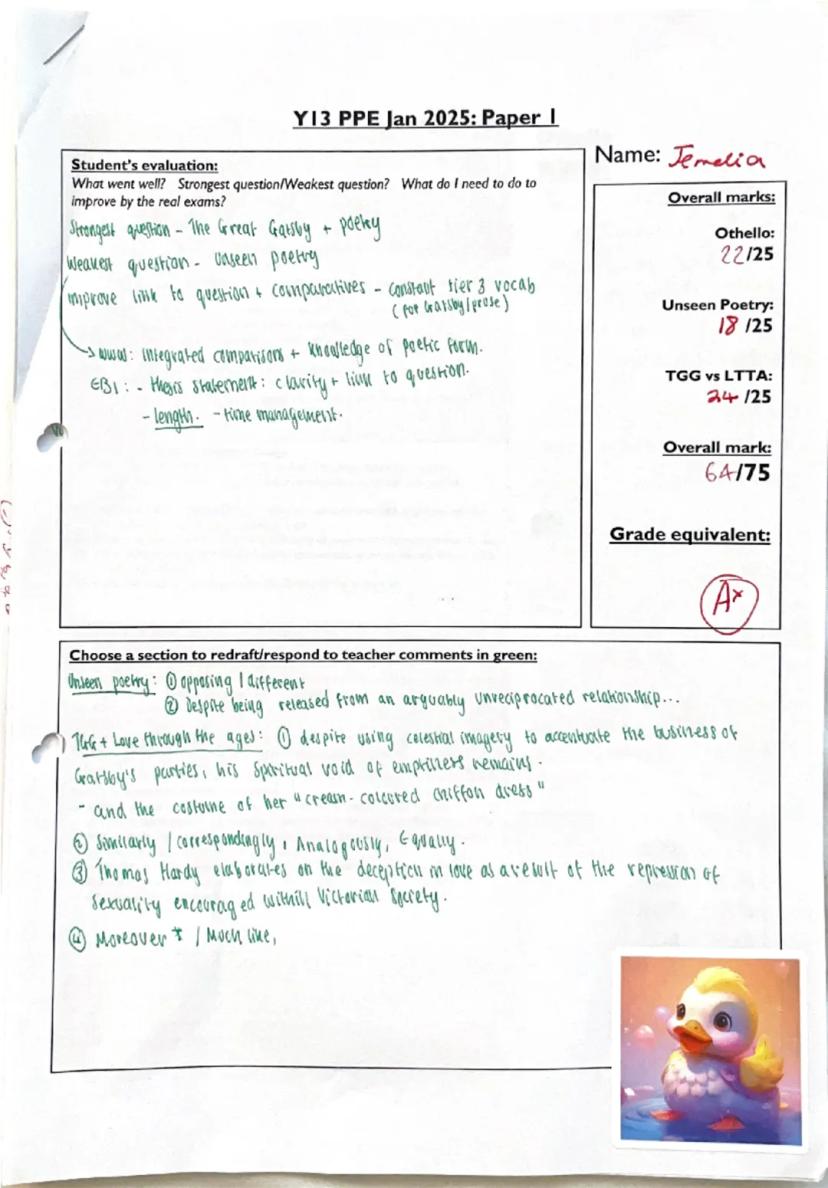 Y13 PPE Jan 2025: Paper 1
Name: Jemelia
Student's evaluation:
What went well? Strongest question/Weakest question? What do I need to do to
improve by the real exams?
Strongest question - The Great Gatsby + poetry
Weakest question - unseen poetry
improve link to question + comparatives - constant tier 3 vocab
(for Gatsby/prose)
WWW: integrated comparisons + knowledge of poetic form.
EBI: - thesis statement: clarity + link to question.
- length. - time management.
Overall marks:
Othello:
22/25
Unseen Poetry:
18/25
TGG vs LTTA:
24/25
Overall mark:
64/75
Grade equivalent:
A*
Choose a section to redraft/respond to teacher comments in green:
Unseen poetry: ① opposing / different
② Despite being released from an arguably unreciprocated relationship...
TGG + Love through the ages: ① despite using celestial imagery to accentuate the business of
Gatsby's parties, his spiritual void of emptiness remains.
- and the costume of her "cream-coloured chiffon dress"
② Similarly / correspondingly, Analogously, Equally.
③ Thomas Hardy elaborates on the deception in love as a result of the repression of
sexuality encouraged within Victorian Society.
④ Moreover * / Much like,